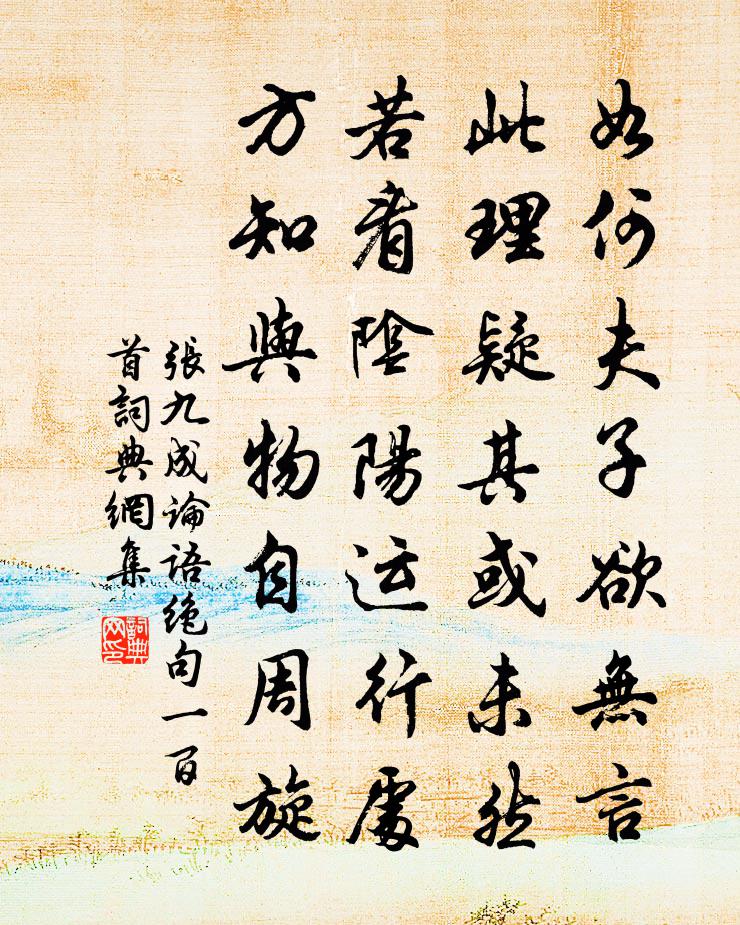 如何夫子欲無言
此理疑其或未然
若看陰陽运行處
方知與物自周旋
張九成論語絶句一百
首詞典網集
詞典网印